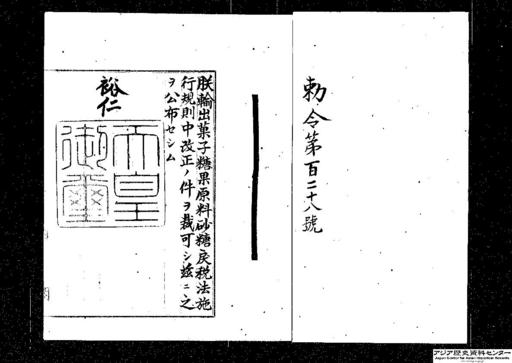 勅令第百二十八號
朕輸出菓子糖果原料砂糖戻税法施
行規則中改正ノ件ヲ裁可シ茲ニ之
ヲ公布セシム
裕仁
天皇
御璽
アジア歴史資料センター
Japan Center for Asian Historical Records